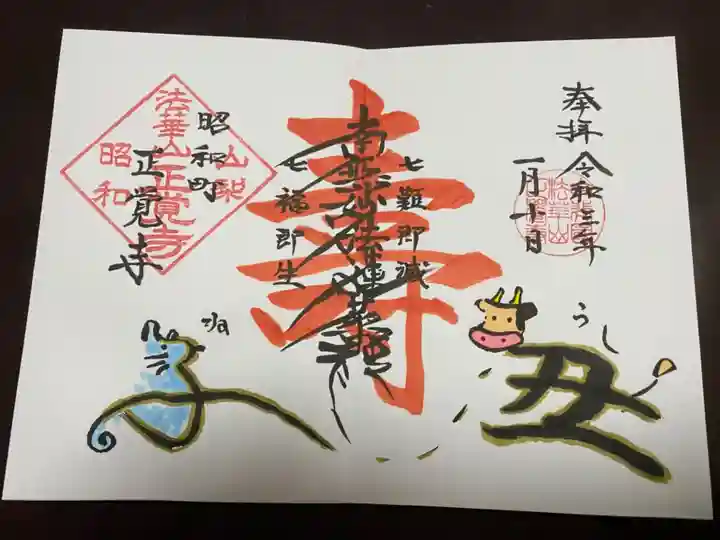 奉拝 令和三年
一月十日
うし
丑
七難即滅
南無妙法蓮華経
壽
七福即生
法華山正覚寺
山梨
昭和
昭和町
正覚寺
ね
子
法華山